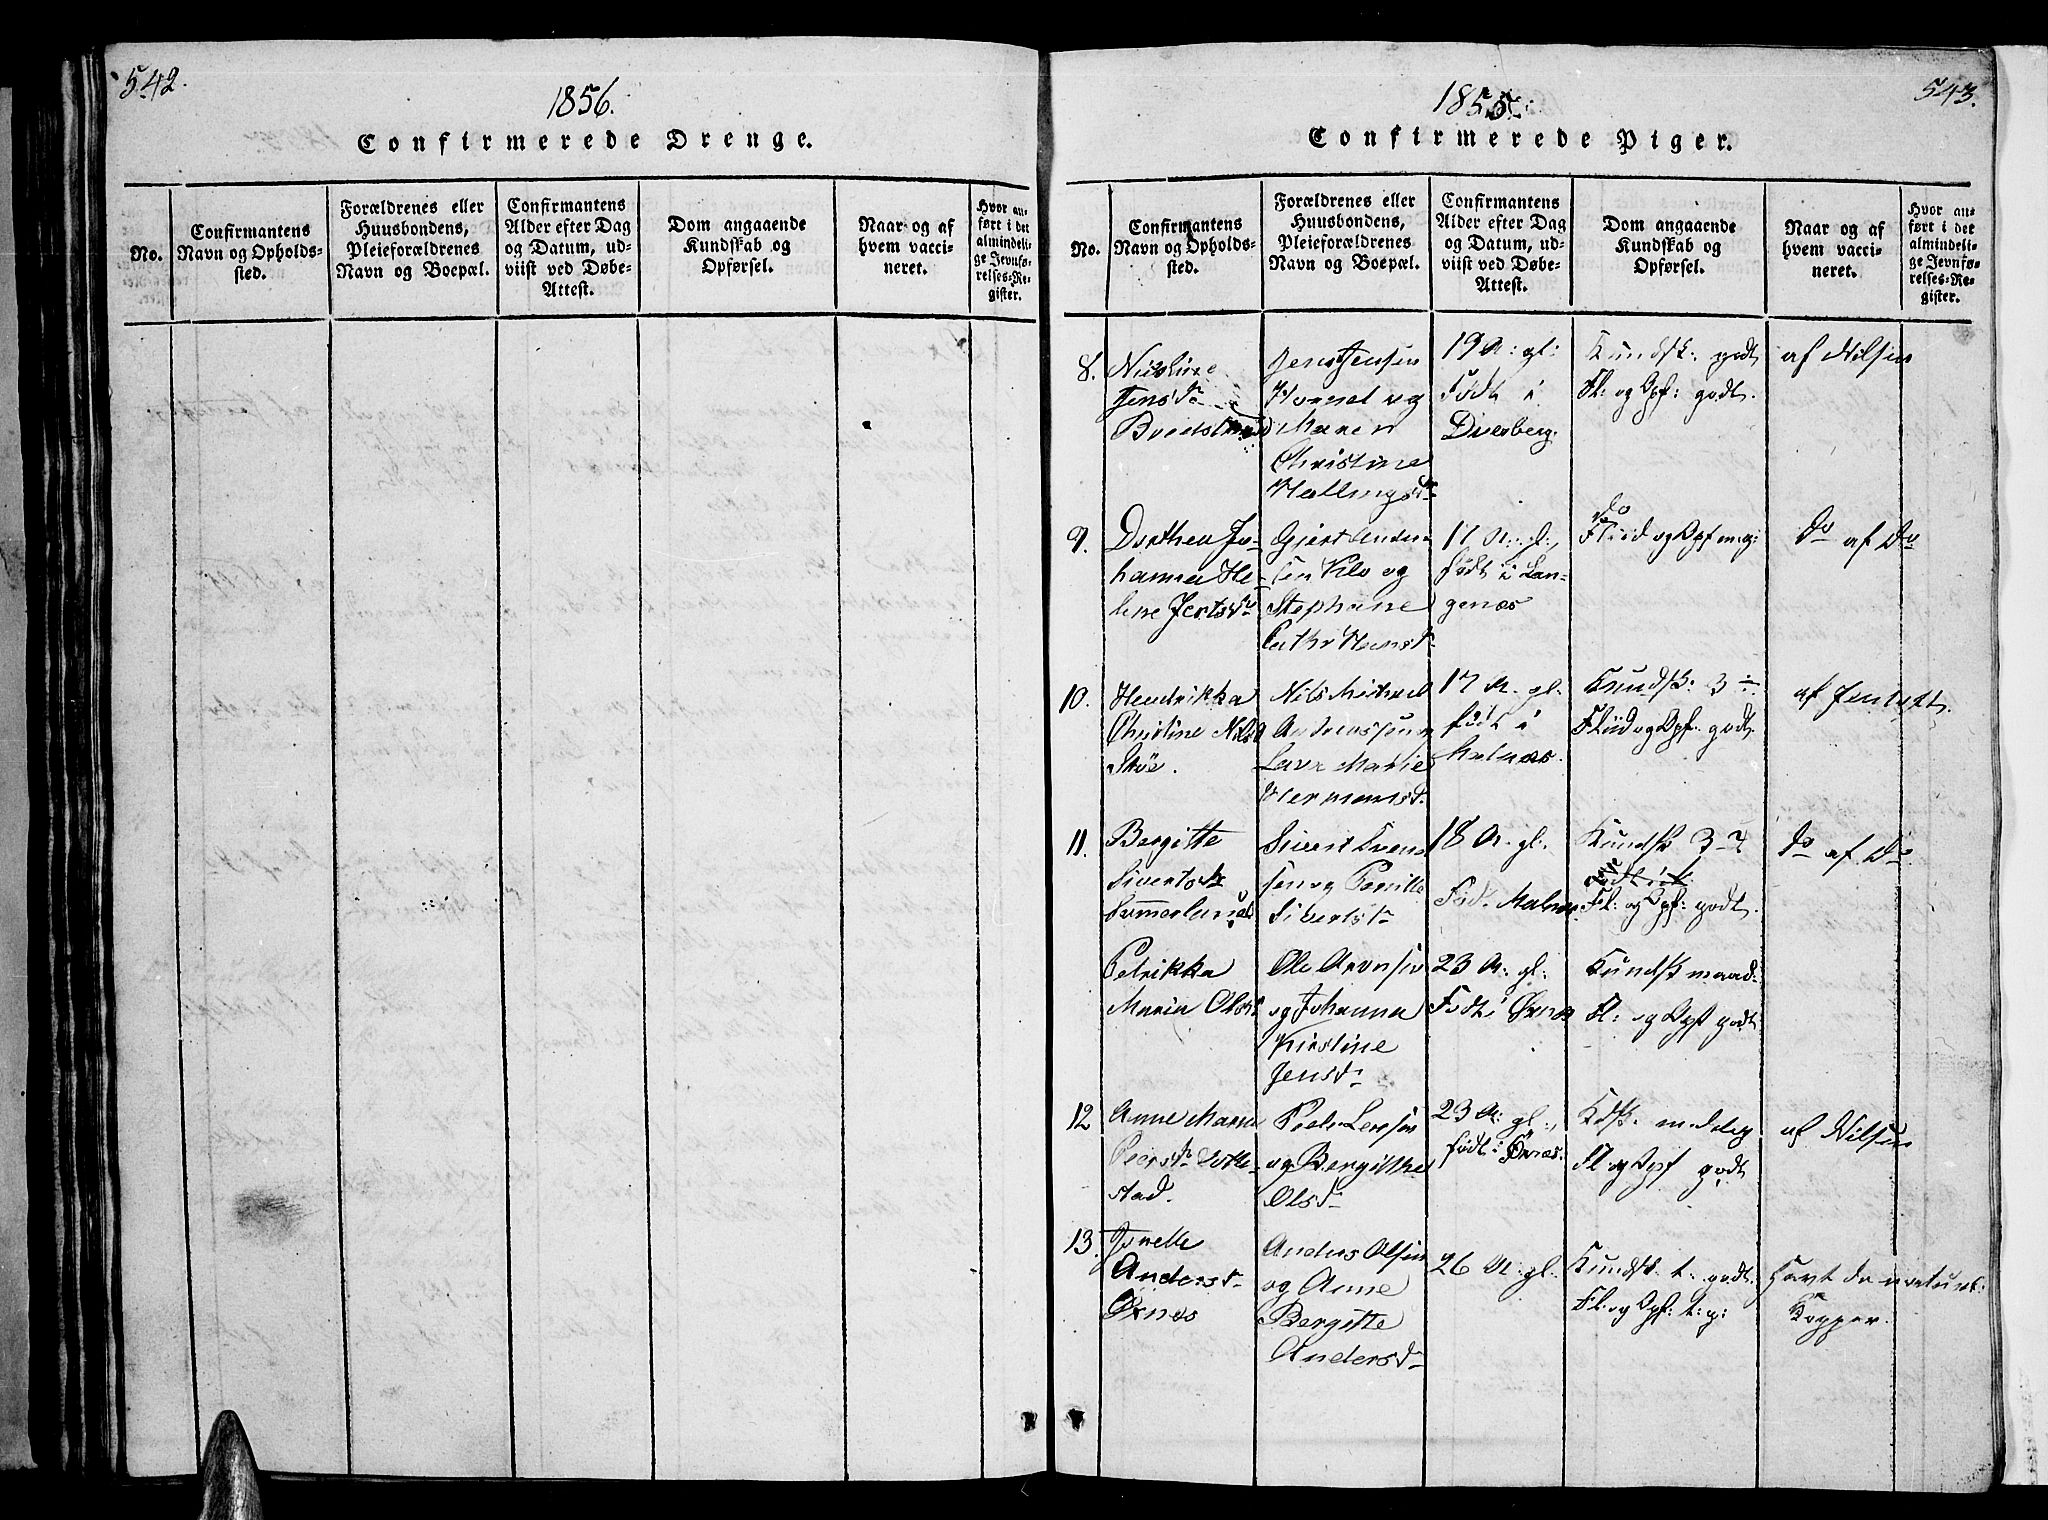 542.
1856.
Confirmerede Drenge.
No.
Confirmantens
Navn og Opholds-
sted.
Forældrenes eller
Huusbondens,
Pleieforældrenes
Navn og Boepæl.
Confirmantens
Alder efter Dag
og Datum, ud-
viist ved Døbe-
Attest.
Dom angaaende
Kundskab og
Opførsel.
Naar og af
hvem vacci-
neret.
Hvor an-
ført i det
almindeli-
ge Jevnfø-
relses-Re-
gister.
543.
1855.
Confirmerede Piger.
No.
Confirmantens
Navn og Opholds-
sted.
Forældrenes eller
Huusbondens,
Pleieforældrenes
Navn og Boepæl.
Confirmantens
Alder efter Dag
og Datum, ud-
viist ved Døbe-
Attest.
Dom angaaende
Kundskab og
Opførsel.
Naar og af
hvem vacci-
neret.
Hvor an-
ført i det
almindeli-
ge Jevnfø-
relses-Re-
gister.
8.
Nicoline
Jensdr
Jens Jensen
og
Maren
Christine
Hallingsdr
19 A: gl:
Født i
Dverberg.
Kundsk: godt
Fl: og Opf: godt.
af Nilsen
9.
Dorthea Jo-
hanna He-
line Jertsdr
Gjert Ander
sen Klo og
Stephane
Cathr Hansdr
17 A: gl:,
født i Lan-
genæs
do
Fliid og Opf m: g:
Do af Do
10.
Hendrikka
Christine Nilsd
Skoe.
Nils Michael
Andreassen og
Lava Marie
Hermansdr
17 A. gl.
født i
Malnæs.
Kundsk: 3 ÷.
Fliid og Opf: godt
af Jentoft.
11.
Bergitte
Sivertsdr
Sommerland
Sivert
sen og Pernille
Sivertsdr
18 A. gl.
Fød. Malnæs
Kundsk 3-4
Fl: og Opf: godt.
Do af Do
Petrikka
Maria Olsdr
Ole Aronsen
og Johanna
Kirstine
Jensdr
23 A: gl:
Født i Øxnæs
Kundsk maad:
Fl: og Opf godt
12
Anne Maria
Peersdr
stad.
Peder Larssen
og Bergithe
Olsdr
23 A: gl:,
født i Öxnæs.
Kdsk: mdelig
Fl og Opf godt
af Nilsen
13.
Jonette
Andersdr
Øxnæs
Anders Olsen
og Anne
Bergitte
Andersdr
26 A: gl:
Kundsk: t: godt
Fl: og Opf: t: g:
Havt de naturl:
Kopper.